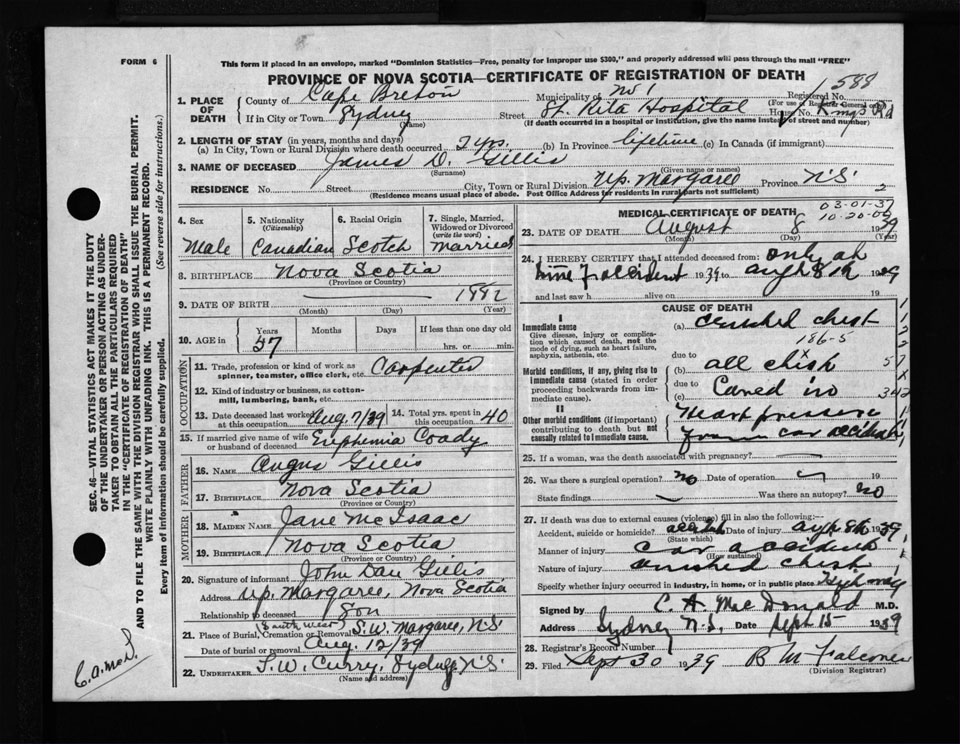 FORM 6
This form if placed in an envelope, marked "Dominion Statistics—Free, penalty for improper use $300," and properly addressed will pass through the mail "FREE"
PROVINCE OF NOVA SCOTIA—CERTIFICATE OF REGISTRATION OF DEATH
588
1. PLACE OF DEATH
County of Cape Breton Municipality of No 1 Registered No.
(For use of Registrar General only)
If in City or Town Sydney Street St. Rita Hospital House No. Kings Rd
(Name) (If death occurred in a hospital or institution, give the name instead of street and number)
2. LENGTH OF STAY (in years, months and days)
(a) In City, Town or Rural Division where death occurred 2 yrs. (b) In Province lifetime (c) In Canada (if immigrant)
3. NAME OF DECEASED James D. Gillis
(Surname) (Given name or names)
RESIDENCE No. Street City, Town or Rural Division Up. Margaree Province N.S.
(Residence means usual place of abode. Post Office Address for residents in rural parts not sufficient)
2
4. Sex
Male
5. Nationality
(Citizenship)
Canadian
6. Racial Origin
Scotch
7. Single, Married, Widowed or Divorced
(write the word)
Married
8. BIRTHPLACE Nova Scotia
(Province or Country)
9. DATE OF BIRTH 1882
(Month) (Day) (Year)
10. AGE in Years Months Days If less than one day old
57 hrs. or min.
OCCUPATION
11. Trade, profession or kind of work as spinner, teamster, office clerk, etc. Carpenter
12. Kind of industry or business, as cotton-mill, lumbering, bank, etc.
13. Date deceased last worked at this occupation Aug. 7/39 14. Total yrs. spent in this occupation 40
15. If married give name of wife or husband of deceased Euphemia Coady
FATHER
16. NAME Angus Gillis
17. BIRTHPLACE Nova Scotia
(Province or Country)
MOTHER
18. MAIDEN NAME Jane McIsaac
19. BIRTHPLACE Nova Scotia
(Province or Country)
20. Signature of informant John Dan Gillis
Address Up. Margaree, Nova Scotia
Relationship to deceased Son
(South West)
21. Place of Burial, Cremation or Removal S.W. Margaree, N.S.
Date of burial or removal Aug. 12/39
22. UNDERTAKER T.W. Curry, Sydney N.S.
(Name and address)
MEDICAL CERTIFICATE OF DEATH
03-01-37
23. DATE OF DEATH August 8 1939
(Month) (Day) (Year)
24. I HEREBY CERTIFY that I attended deceased from: only at
time of accident 1939 to Aug 8th 1939
and last saw h alive on 19
CAUSE OF DEATH
I
Immediate cause
Give disease, injury or complication which caused death, not the mode of dying, such as heart failure, asphyxia, asthenia, etc.
(a) crushed chest
186-5
due to
Morbid conditions, if any, giving rise to immediate cause (stated in order proceeding backwards from immediate cause).
(b) all chest
due to
(c) Caved in
II
Other morbid conditions (if important) contributing to death but not causally related to immediate cause.
Heart pressure
from car accident
25. If a woman, was the death associated with pregnancy?
26. Was there a surgical operation? no Date of operation 19
State findings Was there an autopsy? no
27. If death was due to external causes (violence) fill in also the following:—
Accident, suicide or homicide? accident Date of injury Aug 8th 1939
(State which)
Manner of injury car accident
(How sustained)
Nature of injury crushed chest
Specify whether injury occurred in industry, in home, or in public place highway
Signed by C. A. MacDonald M.D.
Address Sydney N.S. Date Sept 15 1939
28. Registrar's Record Number
29. Filed Sept 30 1939 B M Falconer
(Division Registrar)
SEC. 46—VITAL STATISTICS ACT MAKES IT THE DUTY
OF THE UNDERTAKER OR PERSON ACTING AS UNDERTAKER TO OBTAIN ALL THE PARTICULARS REQUIRED
IN THE "CERTIFICATE OF REGISTRATION OF DEATH"
AND TO FILE THE SAME WITH THE DIVISION REGISTRAR WHO SHALL ISSUE THE BURIAL PERMIT.
WRITE PLAINLY WITH UNFADING INK. THIS IS A PERMANENT RECORD.
Every item of information should be carefully supplied. (See reverse side for instructions.)